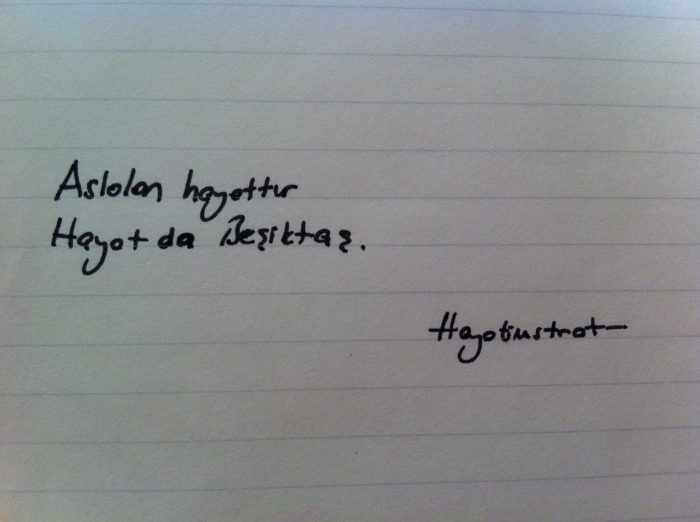 Aslolan hayattır
Hayat da Beşiktaş.